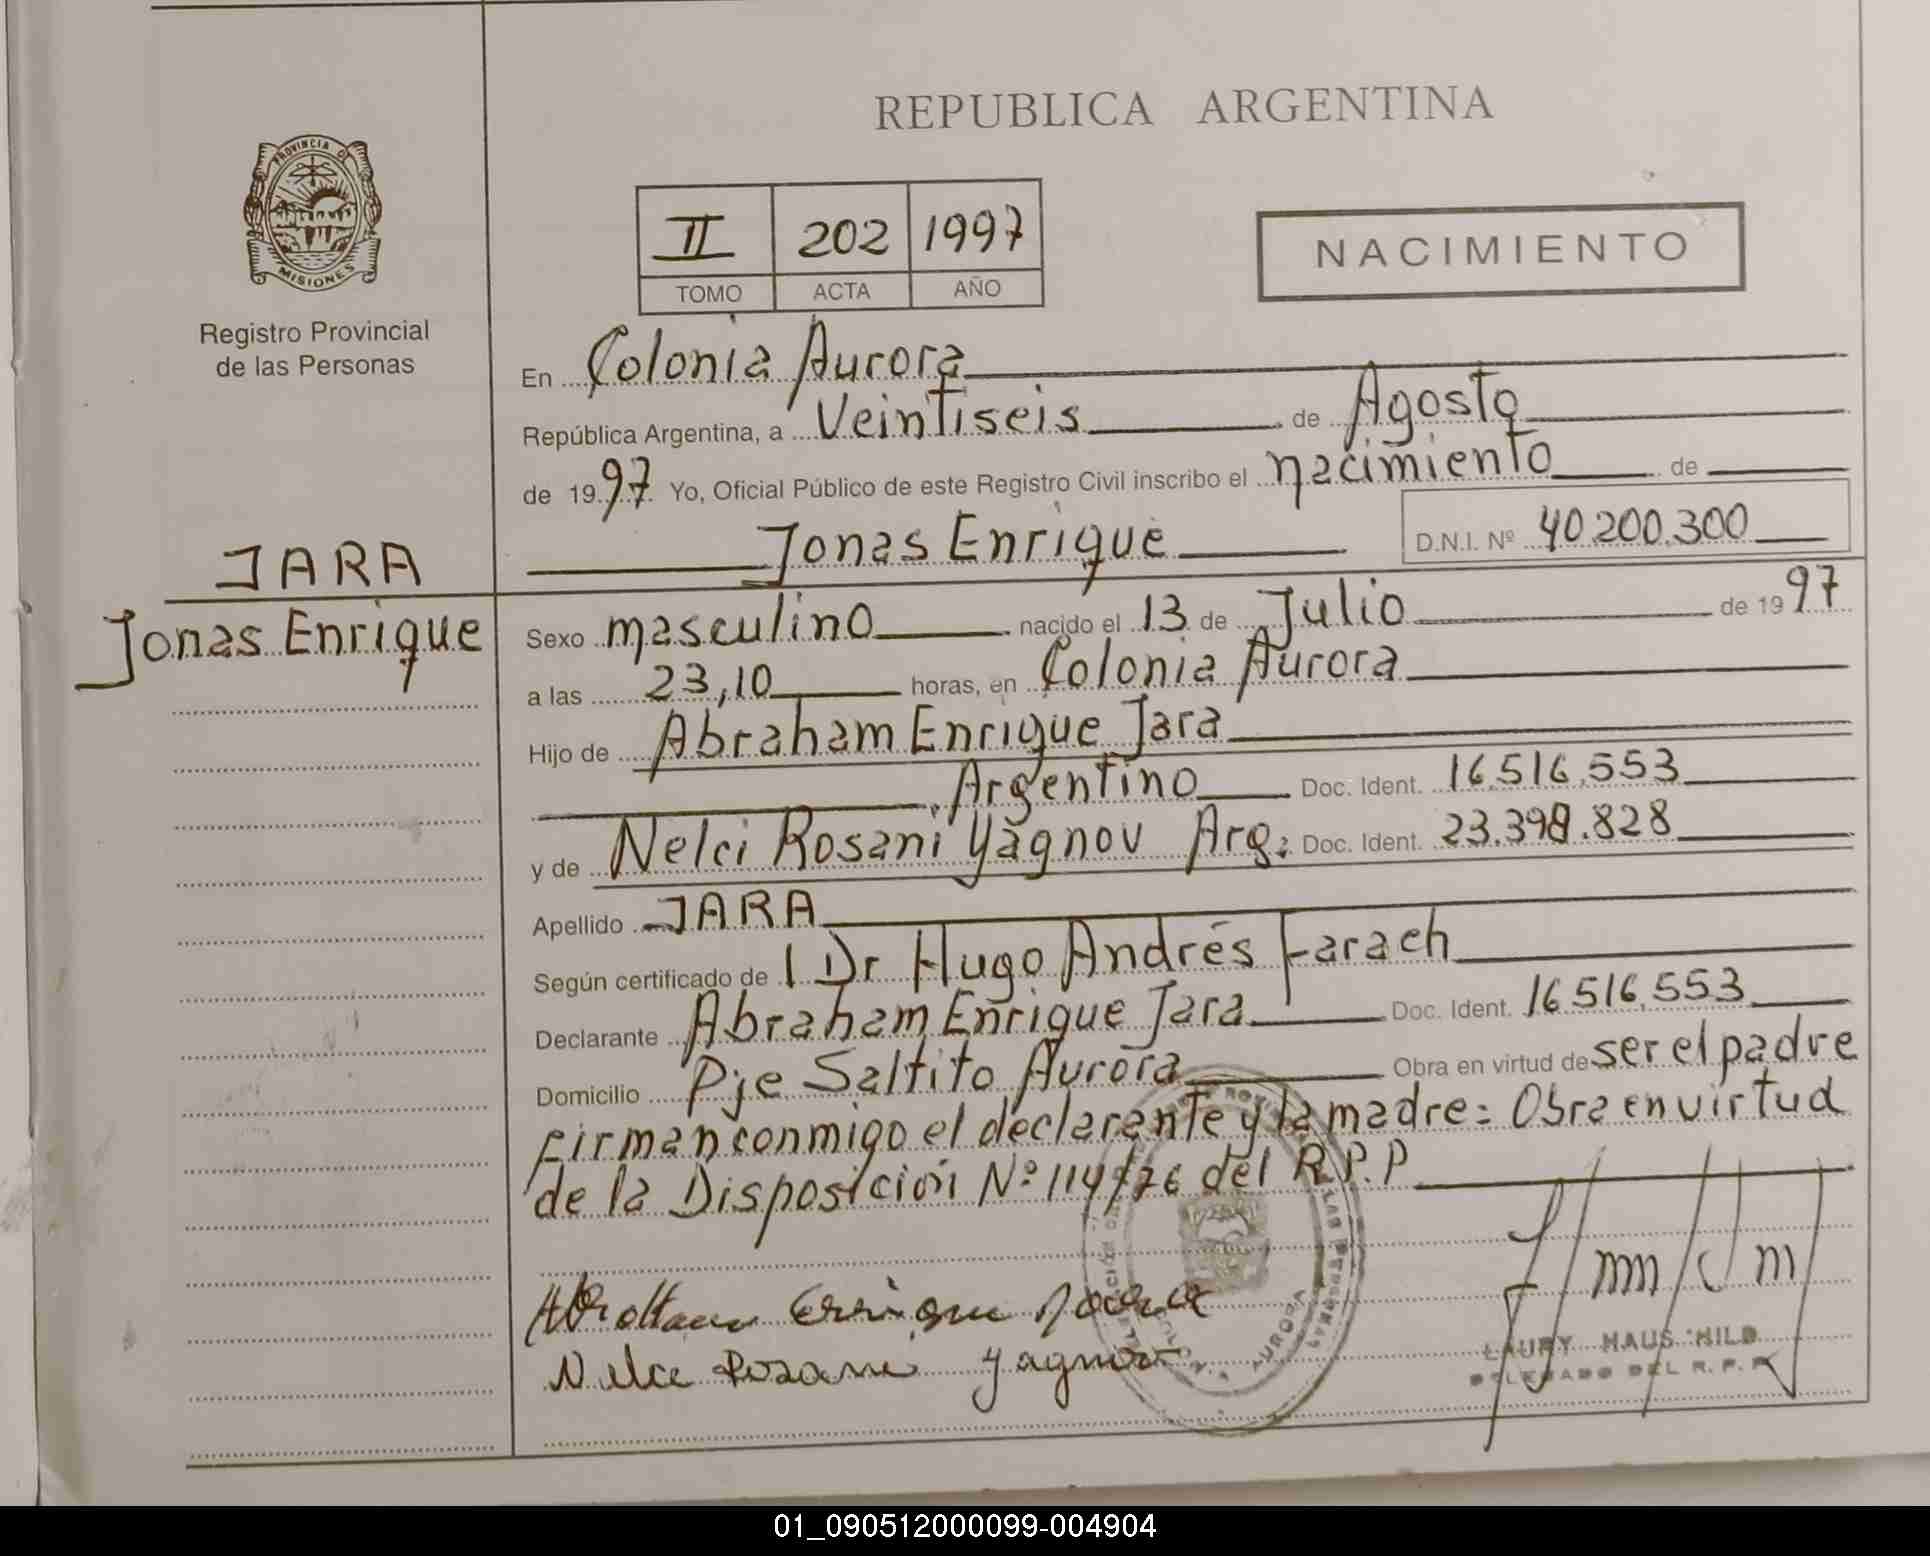 REPUBLICA ARGENTINA
PROVINCIA DE
MISIONES
Registro Provincial
de las Personas
II 202 1997
TOMO ACTA AÑO
NACIMIENTO
En Colonia Aurora
República Argentina, a Veintiseis de Agosto
de 1997 Yo, Oficial Público de este Registro Civil inscribo el nacimiento de
Jonas Enrique D.N.I. Nº 40.200.300
JARA
Jonas Enrique
Sexo masculino nacido el 13 de Julio de 1997
a las 23,10 horas, en Colonia Aurora
Hijo de Abraham Enrique Jara
Argentino Doc. Ident. 16.516.553
y de Nelci Rosani Yagnov Arg: Doc. Ident. 23.398.828
Apellido JARA
Según certificado de l Dr Hugo Andrés Farach
Declarante Abraham Enrique Jara Doc. Ident. 16.516.553
Domicilio Pje Saltito Aurora Obra en virtud de ser el padre
Firman conmigo el declarante y la madre: Obra en virtud
de la Disposición Nº 114/76 del R.P.P
Abraham Enrique Jara
Nelce Rosane Yagnov
AURORA
LAURY HAUSCHILD
DELEGADO DEL R. P. P.
01_090512000099-004904